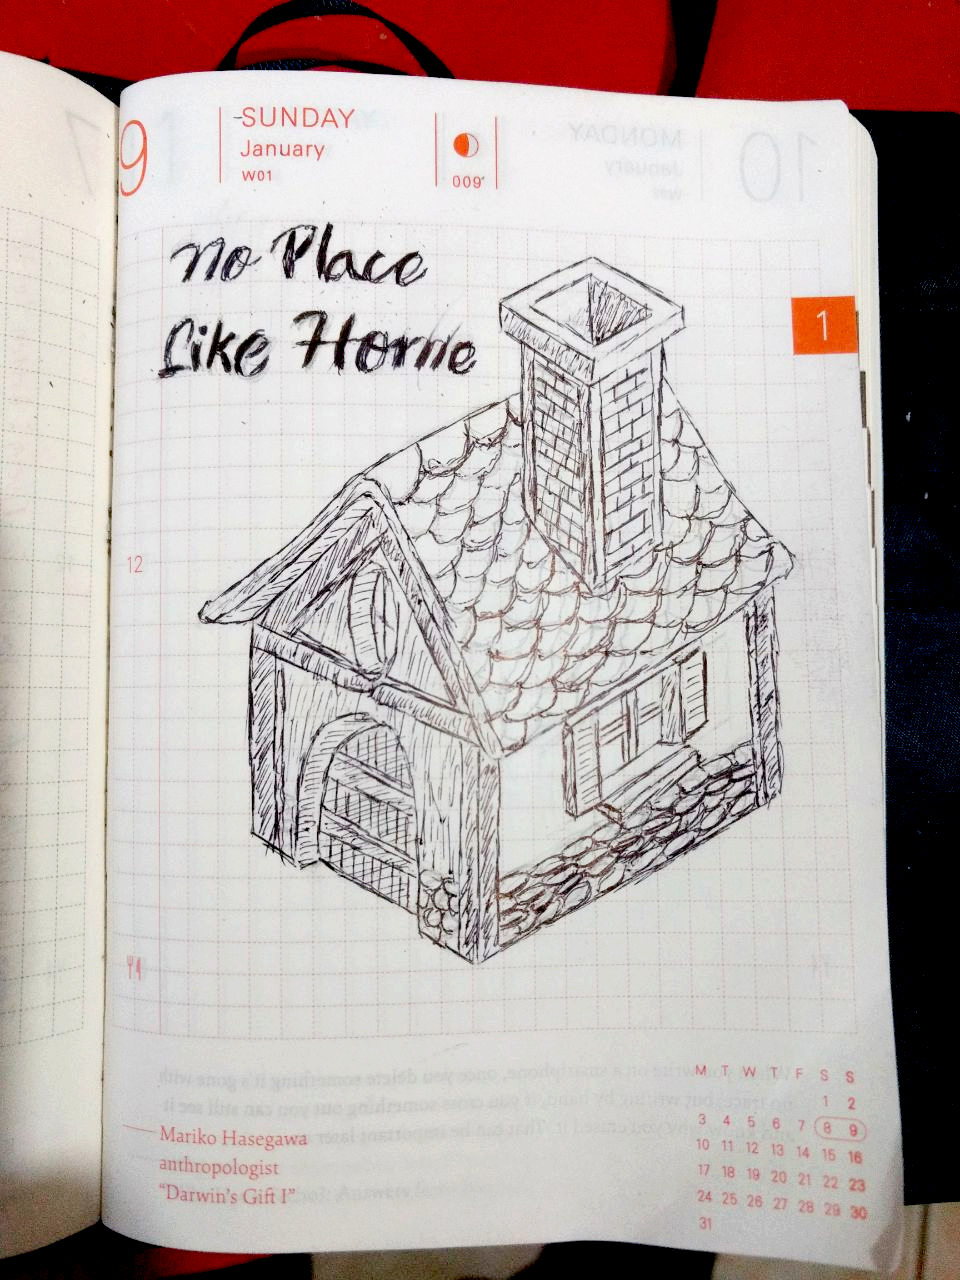 9
SUNDAY
January
W01
009
No Place
Like Home
1
12
Mariko Hasegawa
anthropologist
"Darwin's Gift I"
M T W T F S S
1 2
3 4 5 6 7 8 9
10 11 12 13 14 15 16
17 18 19 20 21 22 23
24 25 26 27 28 29 30
31